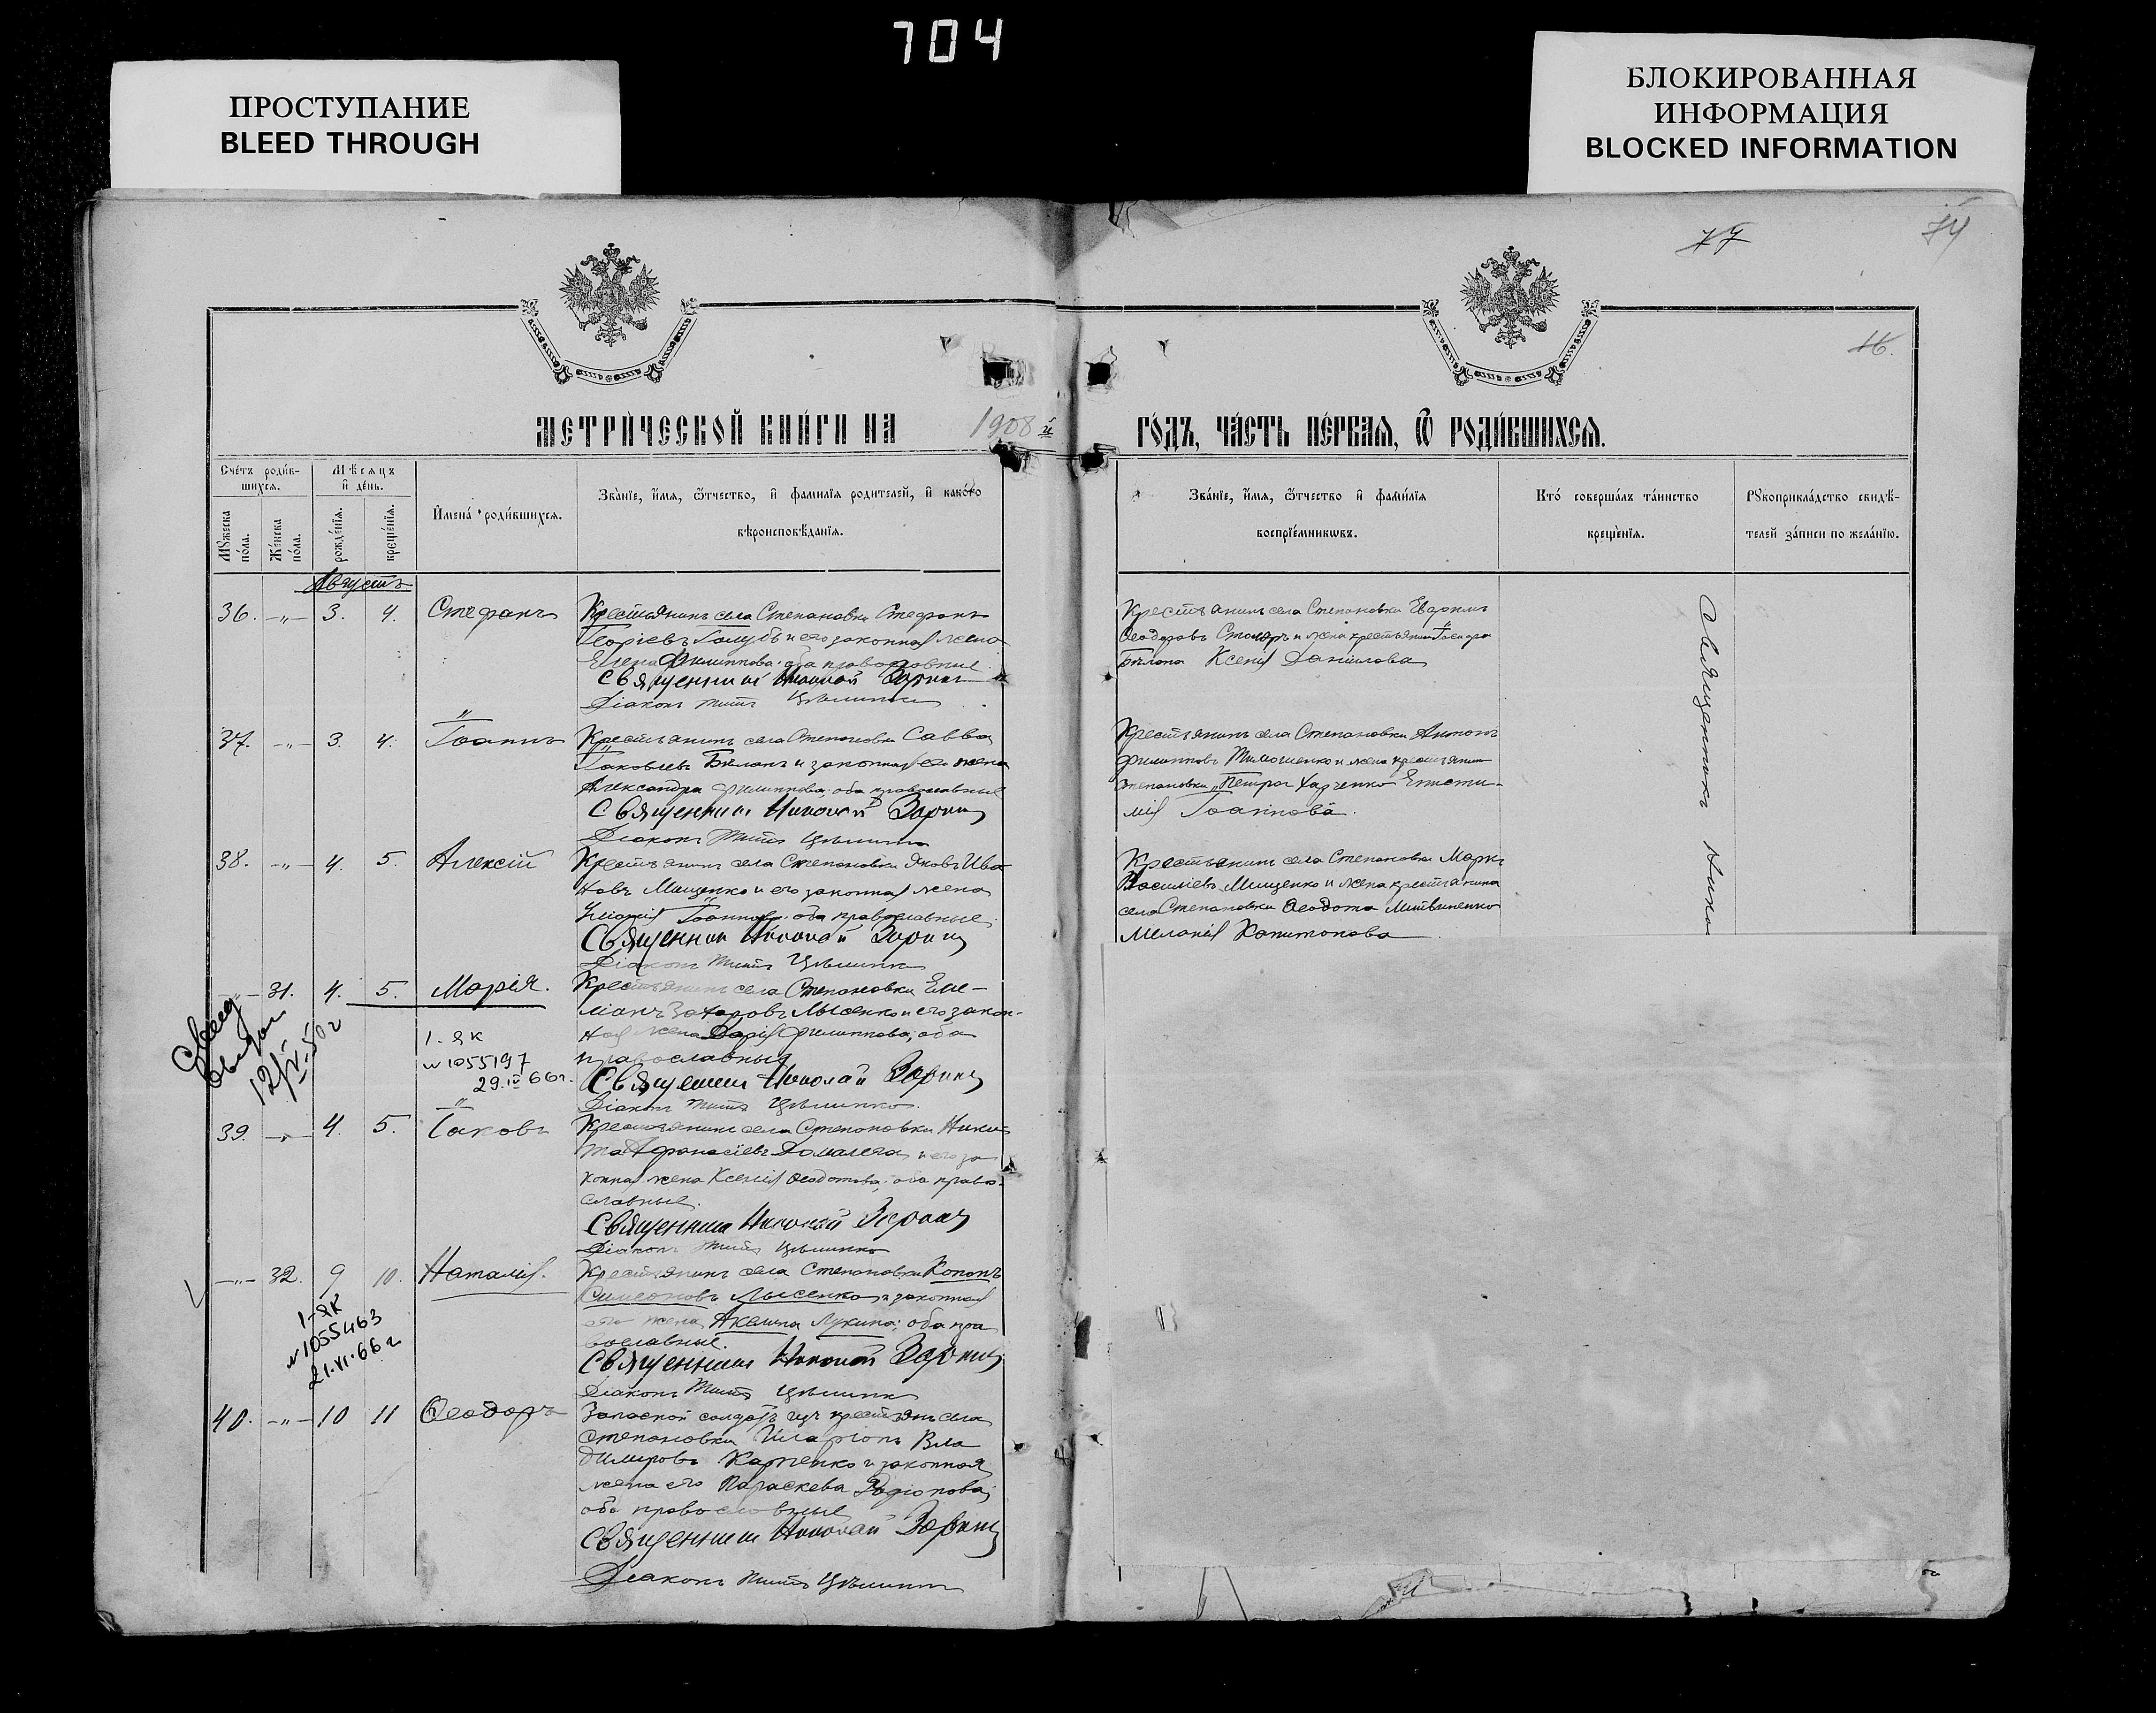 704
ПРОСТУПАНИЕ
BLEED THROUGH
БЛОКИРОВАННАЯ
ИНФОРМАЦИЯ
BLOCKED INFORMATION
77
74
16.
МЕТРИЧЕСКОЙ КНИГИ НА 1908 й
ГОДЪ, ЧАСТЬ ПЕРВАЯ, Ѿ РОДИВШИХСЯ.
Счетъ родив-
шихся.
Мужеска пола.
Женска пола.
Мѣсяцъ и день.
рожденїя.
крещенїя.
Имена родившихся.
Званїе, имя, ѿтчество, и фамилїя родителей, и какого
вѣроисповѣданїя.
Званїе, имя, ѿтчество и фамилїя
воспрїемникѡвъ.
Кто совершалъ таинство
крещенїя.
Рукоприкладство свидѣ-
телей записи по желанїю.
Августъ
36. -„- 3. 4. Стефанъ
Крестьянинъ села Степановки Стефанъ
Георгіевъ Голубъ и его законная жена
Елена Филиппова, оба православные.
Священникъ Николай Зорин
Діаконъ Титъ
Крестьянинъ села Степановки
Ѳеодоровъ Столяръ и жена крестьянина
Бѣлана Ксенія Даніилова
37. -„- 3. 4. Іоаннъ
Крестьянинъ села Степановки Савва
Іаковлевъ Бѣланъ и законная его жена
Александра Филиппова, оба православные
Священник Николай Зорин
Діаконъ Титъ
Крестьянинъ села Степановки Антонъ
Филипповъ Тимошенко и жена крестьянина
Степановки Петра Харченко
Іоаннова.
38. -„- 4. 5. Алексій
Крестьянинъ села Степановки Яковъ Ива-
новъ Мищенко и его законная жена
Іоаннова, оба православные.
Священник Николай Зорин
Діаконъ Титъ
Крестьянинъ села Степановки Маркъ
Василіевъ Мищенко и жена крестьянина
села Степановки Ѳеодота Литвиненко
Меланія Капитонова
Священникъ Никол
31. 4. 5. Марія.
Крестьянинъ села Степановки Еме-
ліанъ Захаровъ Лысенко и его закон-
ная жена Дарія Филиппова, оба
православные
Священник Николай Зорин
Діаконъ Титъ
1-ЯК
№1055197
29.IV 66г.
39. -„- 4. 5. Іаковъ
Крестьянинъ села Степановки Ники-
та Афанасіевъ и его за-
конная жена Ксенія Ѳеодотова, оба право-
славные.
Священник Николай Зорин
Діаконъ Титъ
-„- 32. 9 10. Наталія.
Крестьянинъ села Степановки Кононъ
Симеоновъ Лысенко и законная
его жена Акилина Лукина; оба пра-
вославные.
Священник Николай Зорин
Діаконъ Титъ
1-ЯК
№1055463
21.VI.66г
40. -„- 10 11 Ѳеодоръ
Запасной солдатъ изъ крестьянъ села
Степановки Иларіонъ Вла-
диміровъ Карпенко и законная
жена его Параскева Родіонова,
оба православные
Священник Николай Зорин
Діаконъ Титъ